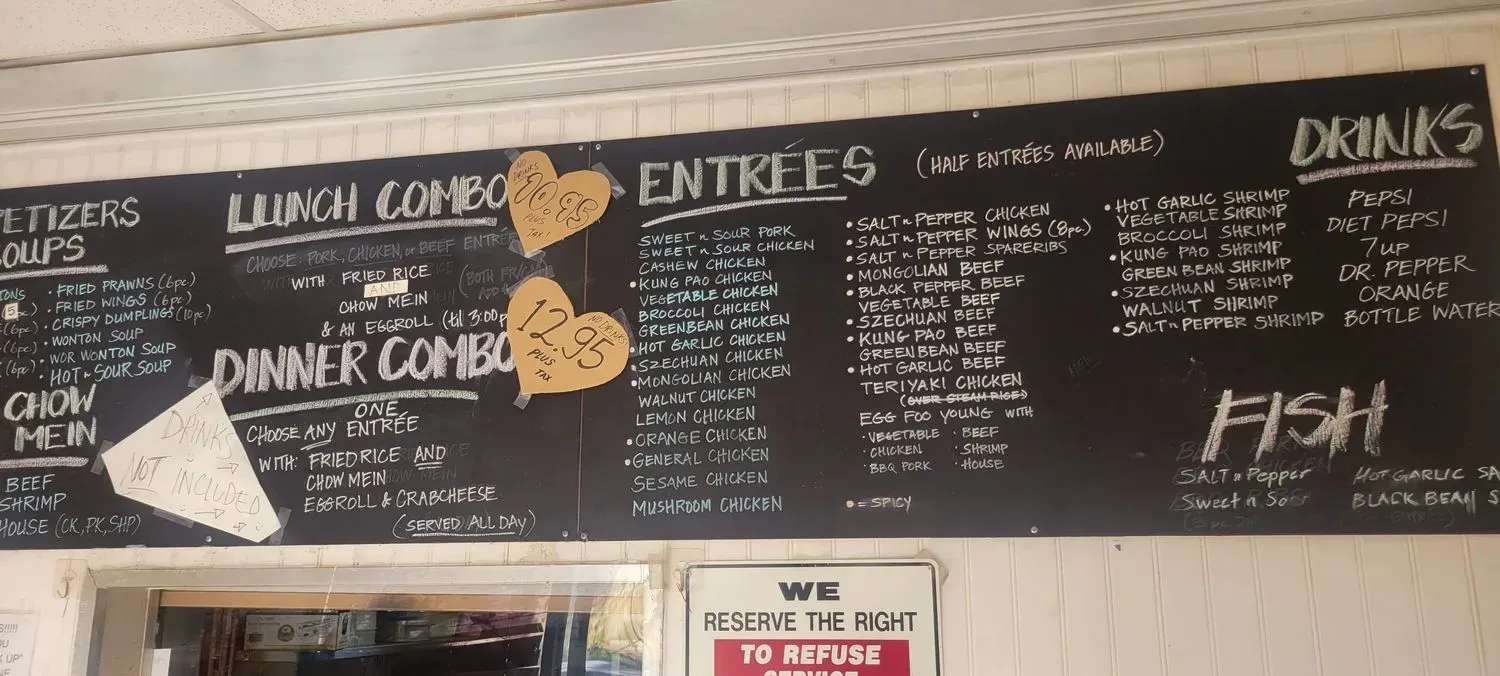 PETIZERS
OUPS
TONS
5
(6pc.)
(6pc.)
(6pc.)
• FRIED PRAWNS (6pc.)
• FRIED WINGS (6pc.)
• CRISPY DUMPLINGS (10pc.)
• WONTON SOUP
• WOR WONTON SOUP
• HOT n SOUR SOUP
CHOW
MEIN
BEEF
SHRIMP
HOUSE (CK, PK, SHP)
DRINKS
NOT INCLUDED
LUNCH COMBO
CHOOSE: PORK, CHICKEN, or BEEF ENTRÉE
WITH FRIED RICE
AND
CHOW MEIN
& AN EGGROLL (til 3:00p
NO
DRINKS
10.95
PLUS
TAX!
DINNER COMBO
CHOOSE ONE
ANY ENTRÉE
WITH: FRIED RICE AND
CHOW MEIN
EGGROLL & CRABCHEESE
(SERVED ALL DAY)
12.95
NO DRINKS
PLUS
TAX
ENTRÉES (HALF ENTRÉES AVAILABLE)
SWEET n SOUR PORK
SWEET n SOUR CHICKEN
CASHEW CHICKEN
• KUNG PAO CHICKEN
VEGETABLE CHICKEN
BROCCOLI CHICKEN
GREENBEAN CHICKEN
• HOT GARLIC CHICKEN
• SZECHUAN CHICKEN
• MONGOLIAN CHICKEN
WALNUT CHICKEN
LEMON CHICKEN
• ORANGE CHICKEN
• GENERAL CHICKEN
SESAME CHICKEN
MUSHROOM CHICKEN
• SALT n PEPPER CHICKEN
• SALT n PEPPER WINGS (8pc.)
• SALT n PEPPER SPARERIBS
• MONGOLIAN BEEF
• BLACK PEPPER BEEF
VEGETABLE BEEF
• SZECHUAN BEEF
• KUNG PAO BEEF
GREEN BEAN BEEF
• HOT GARLIC BEEF
TERIYAKI CHICKEN
(OVER STEAM RICE)
EGG FOO YOUNG WITH
• VEGETABLE • BEEF
• CHICKEN • SHRIMP
• BBQ PORK • HOUSE
• = SPICY
• HOT GARLIC SHRIMP
VEGETABLE SHRIMP
BROCCOLI SHRIMP
• KUNG PAO SHRIMP
GREEN BEAN SHRIMP
• SZECHUAN SHRIMP
WALNUT SHRIMP
• SALT n PEPPER SHRIMP
DRINKS
PEPSI
DIET PEPSI
7 UP
DR. PEPPER
ORANGE
BOTTLE WATER
FISH
SALT n Pepper
Sweet n So
HOT GARLIC SA
BLACK BEAN S
WE
RESERVE THE RIGHT
TO REFUSE
SERVICE